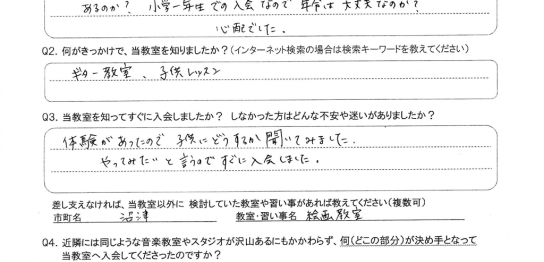 あるのか? 小学一年生での入会なので年令は大丈夫なのか?
心配でした。
Q2. 何がきっかけで、当教室を知りましたか?(インターネット検索の場合は検索キーワードを教えてください)
ギター教室、子供レッスン
Q3. 当教室を知ってすぐに入会しましたか? しなかった方はどんな不安や迷いがありましたか?
体験があったので子供にどうするか聞いてみました。
やってみたいと言うのですぐに入会しました。
差し支えなければ、当教室以外に 検討していた教室や習い事があれば教えてください(複数可)
市町名 沼津 教室・習い事名 絵画教室
Q4. 近隣には同じような音楽教室やスタジオが沢山あるにもかかわらず、何(どこの部分)が決め手となって
当教室へ入会してくださったのですか?